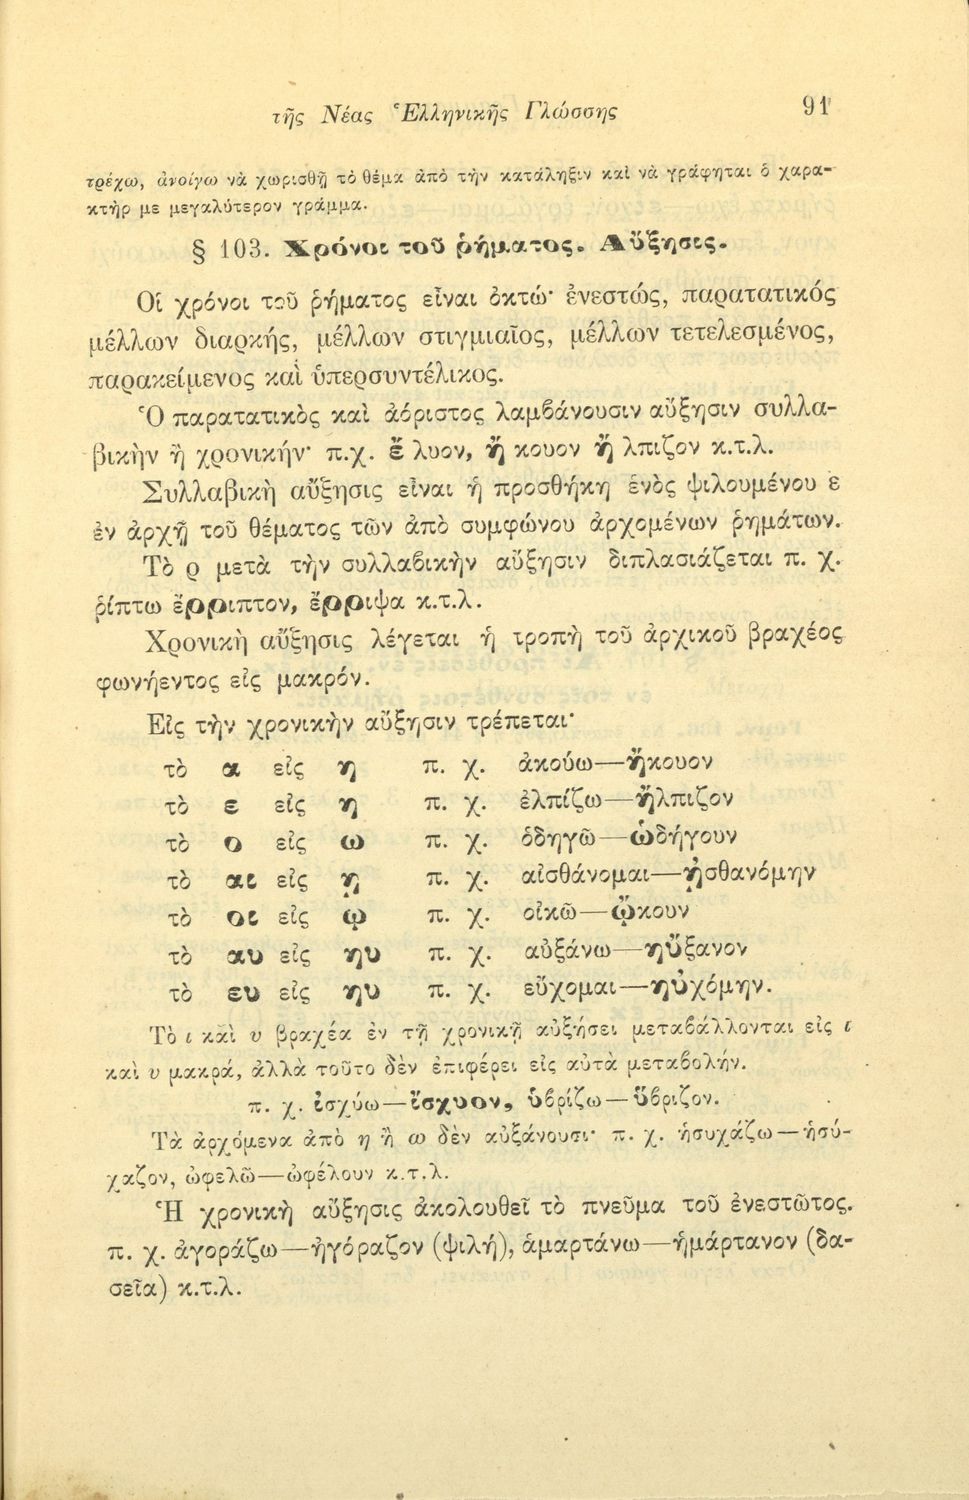 τῆς Νέας Ἑλληνικῆς Γλώσσης 91
τρέχω, ἀνοίγω νὰ χωρισθῇ τὸ θέμα ἀπὸ τὴν κατάληξιν καὶ νὰ γράφηται ὁ χαρα-
κτὴρ με μεγαλύτερον γράμμα.
§ 103. Χρόνοι τοῦ ῥήματος. Αὔξησις.
Οἱ χρόνοι τοῦ ῥήματος εἶναι ὀκτώ· ἐνεστώς, παρατατικός
μέλλων διαρκής, μέλλων στιγμιαῖος, μέλλων τετελεσμένος,
παρακείμενος καὶ ὑπερσυντέλικος.
Ὁ παρατατικὸς καὶ ἀόριστος λαμβάνουσιν αὔξησιν συλλα-
βικὴν ἢ χρονικήν· π.χ. ἔ λυον, ἤ κουον ἤ λπιζον κ.τ.λ.
Συλλαβικὴ αὔξησις εἶναι ἡ προσθήκη ἑνὸς ψιλουμένου ε
ἐν ἀρχῇ τοῦ θέματος τῶν ἀπὸ συμφώνου ἀρχομένων ῥημάτων.
Τὸ ρ μετὰ τὴν συλλαβικὴν αὔξησιν διπλασιάζεται π. χ.
ῥίπτω ἔρριπτον, ἔρριψα κ.τ.λ.
Χρονικὴ αὔξησις λέγεται ἡ τροπὴ τοῦ ἀρχικοῦ βραχέος
φωνήεντος εἰς μακρόν.
Εἰς τὴν χρονικὴν αὔξησιν τρέπεται·
τὸ α εἰς η π. χ. ἀκούω—ἤκουον
τὸ ε εἰς η π. χ. ἐλπίζω—ἤλπιζον
τὸ ο εἰς ω π. χ. ὁδηγῶ—ὡδήγουν
τὸ αι εἰς ῃ π. χ. αἰσθάνομαι—ᾐσθανόμην
τὸ οι εἰς ῳ π. χ. οἰκῶ—ᾤκουν
τὸ αυ εἰς ηυ π. χ. αὐξάνω—ηὔξανον
τὸ ευ εἰς ηυ π. χ. εὔχομαι—ηὐχόμην.
Τὸ ι καὶ υ βραχέα ἐν τῇ χρονικῇ αὐξήσει μεταβάλλονται εἰς ι
καὶ υ μακρά, ἀλλὰ τοῦτο δὲν ἐπιφέρει εἰς αὐτὰ μεταβολήν.
π. χ. ἰσχύω—ἴσχυον, ὑβρίζω—ὕβριζον.
Τὰ ἀρχόμενα ἀπὸ η ἢ ω δὲν αὐξάνουσι· π. χ. ἡσυχάζω—ἡσύ-
χαζον, ὠφελῶ—ὠφέλουν κ.τ.λ.
Ἡ χρονικὴ αὔξησις ἀκολουθεῖ τὸ πνεῦμα τοῦ ἐνεστῶτος.
π. χ. ἀγοράζω—ἠγόραζον (ψιλή), ἁμαρτάνω—ἡμάρτανον (δα-
σεῖα) κ.τ.λ.